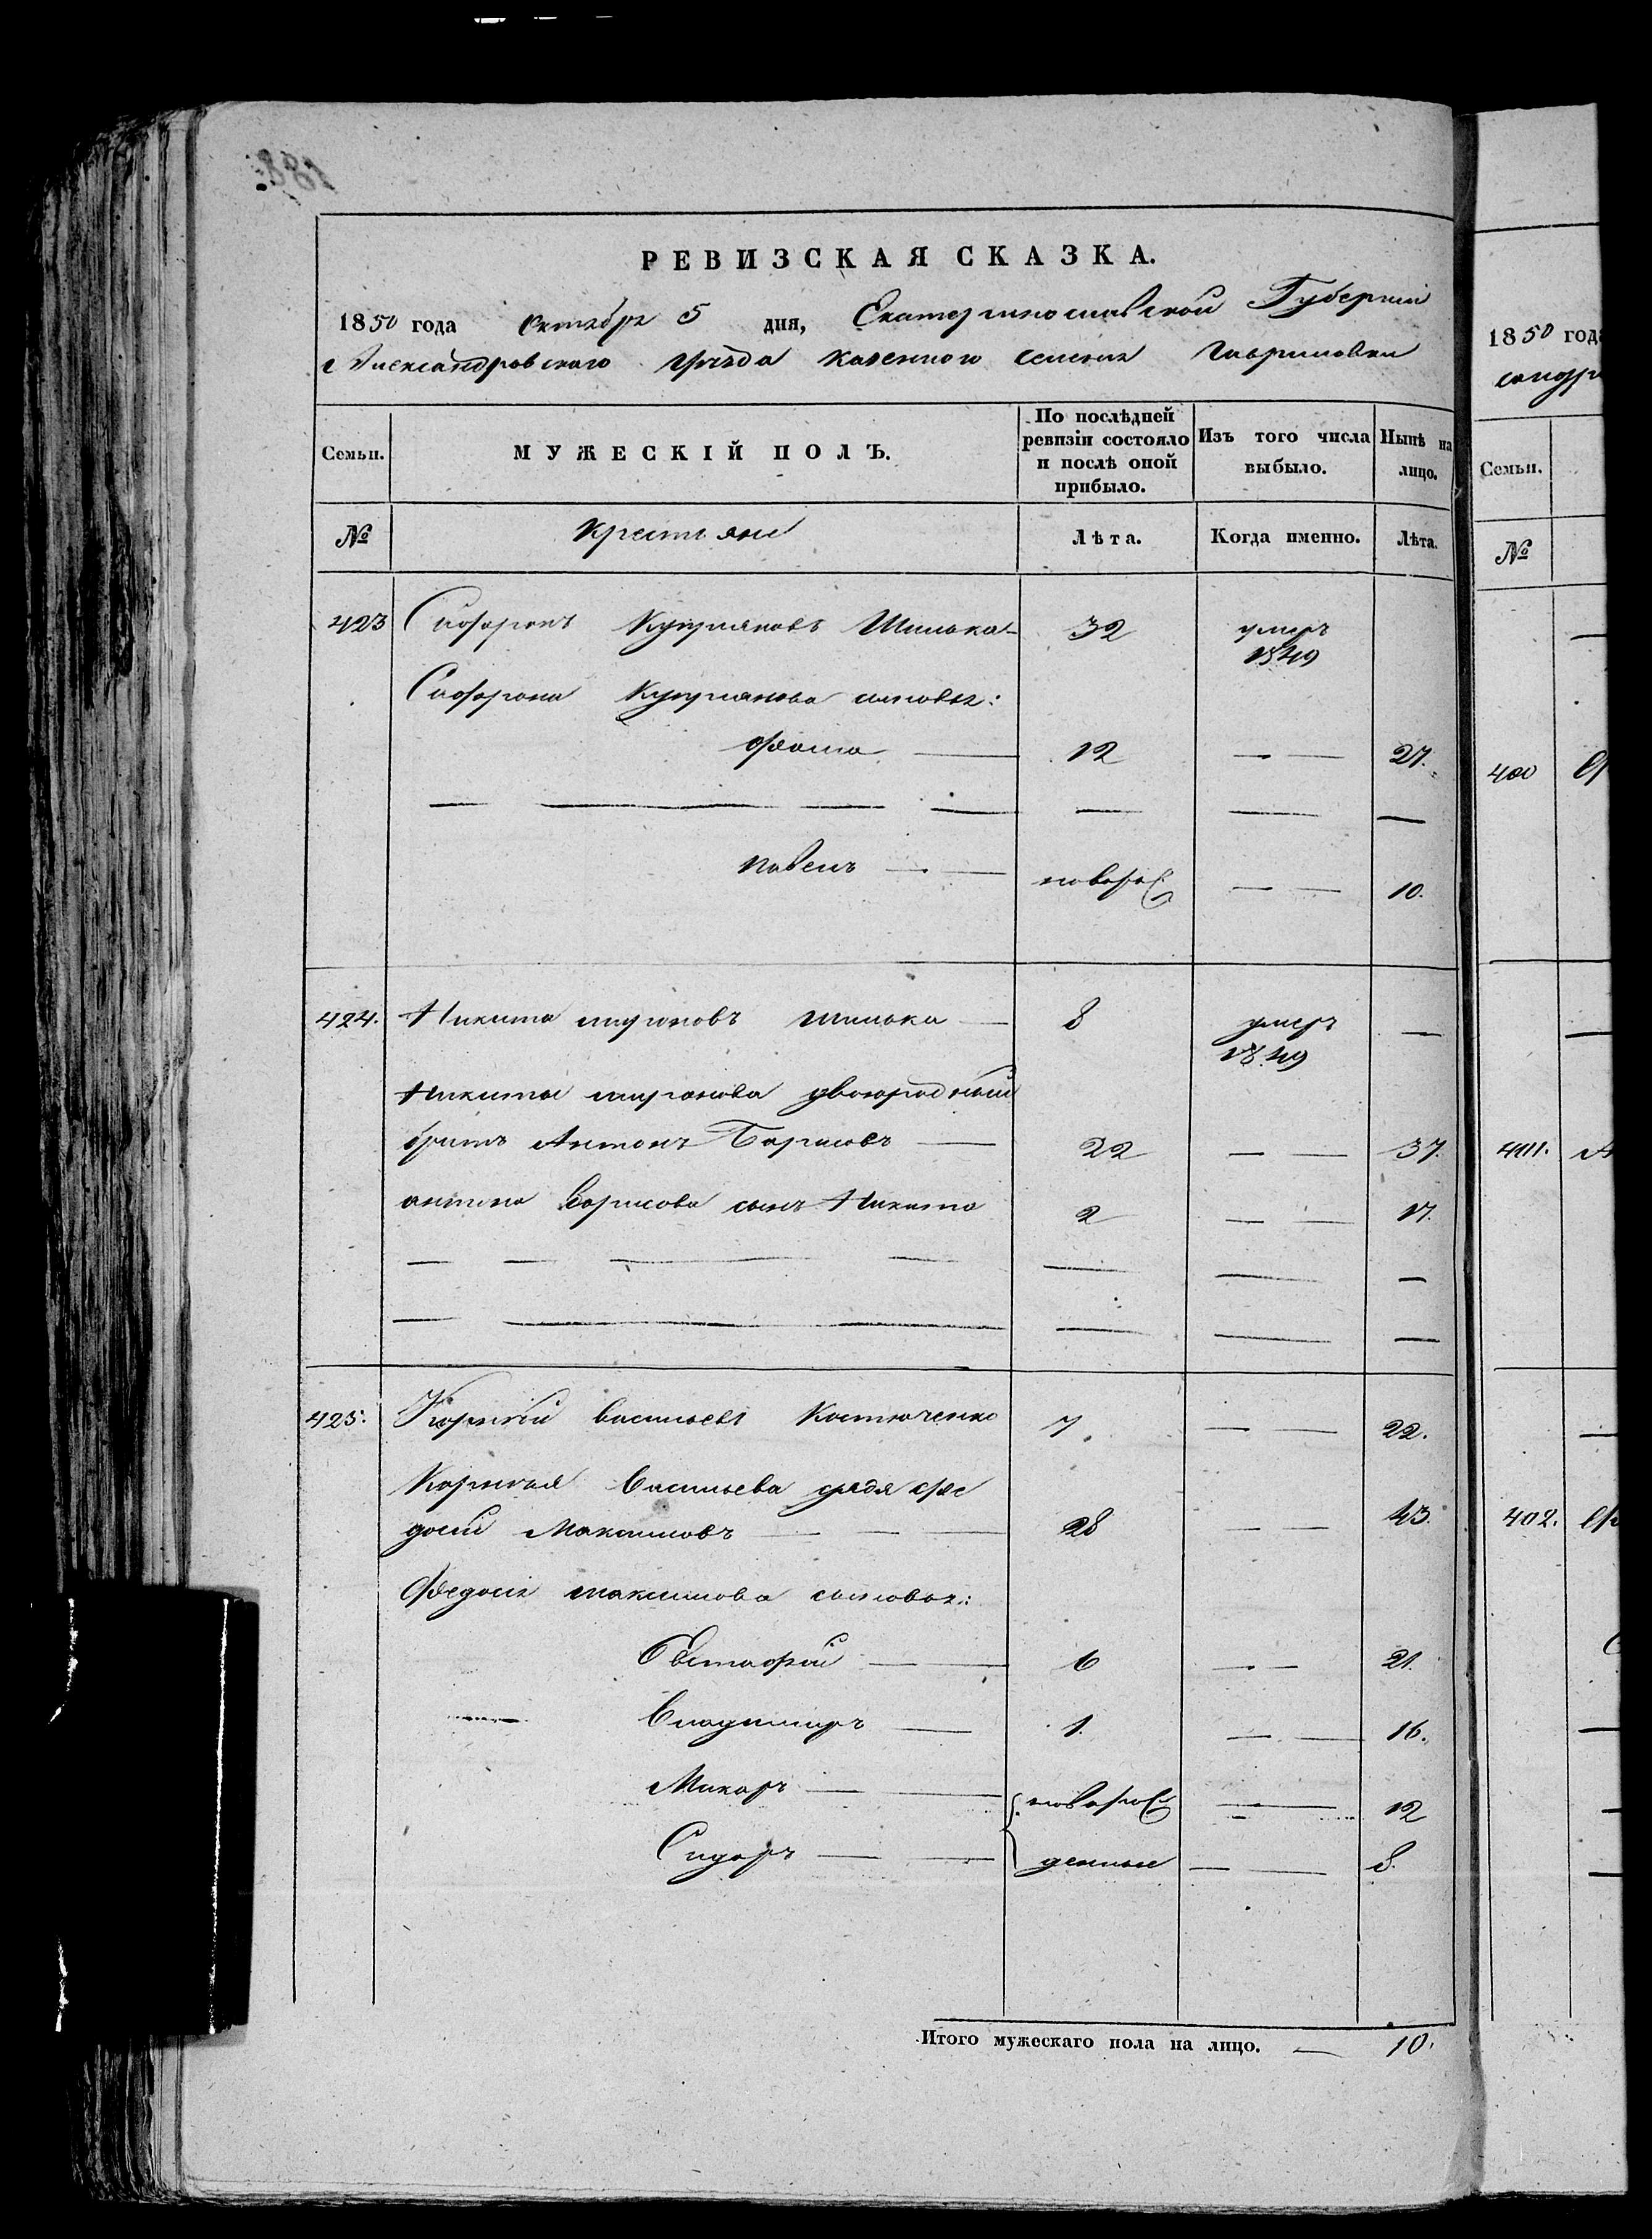 РЕВИЗСКАЯ СКАЗКА.
1850 года Октября 5 дня, Екатеринославской Губернии
Александровского уѣзда казенного селения Гавриловки
Семьи. МУЖЕСКІЙ ПОЛЪ. По послѣдней ревизіи состояло и послѣ оной прибыло. Изъ того числа выбыло. Нынѣ на лицо.
№ Крестьяне Лѣта. Когда именно. Лѣта.
423 Софронъ Куприяновъ Шилька 32 умеръ 1849
Софрона Куприянова сыновья:
Фома 12 27.
Павелъ новорож 10.
424. Никита мироновъ шилька 8 умеръ 1849
Никиты миронова двоюродный
братъ Антонъ Борисовъ 22 37.
антона Борисова сынъ Никита 2 17.
425. Корнѣй васильевъ Костюченко 7 22.
Корнѣя Васильева дядя Фе
досій Максимовъ 28 43.
Федосія максимова сыновья:
Евстафій 6 21.
Владимиръ 1. 16.
Макаръ новорож 12
Сидоръ денные 8.
Итого мужескаго пола на лицо. 10.
1850 года
Семьи.
№
400
401.
402.